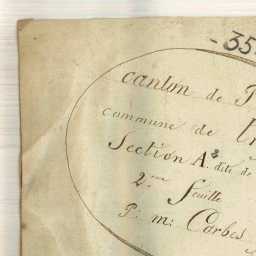 -35
canton de
commune de
Section A² dite de
2.me Feuille
P. m: Corbes